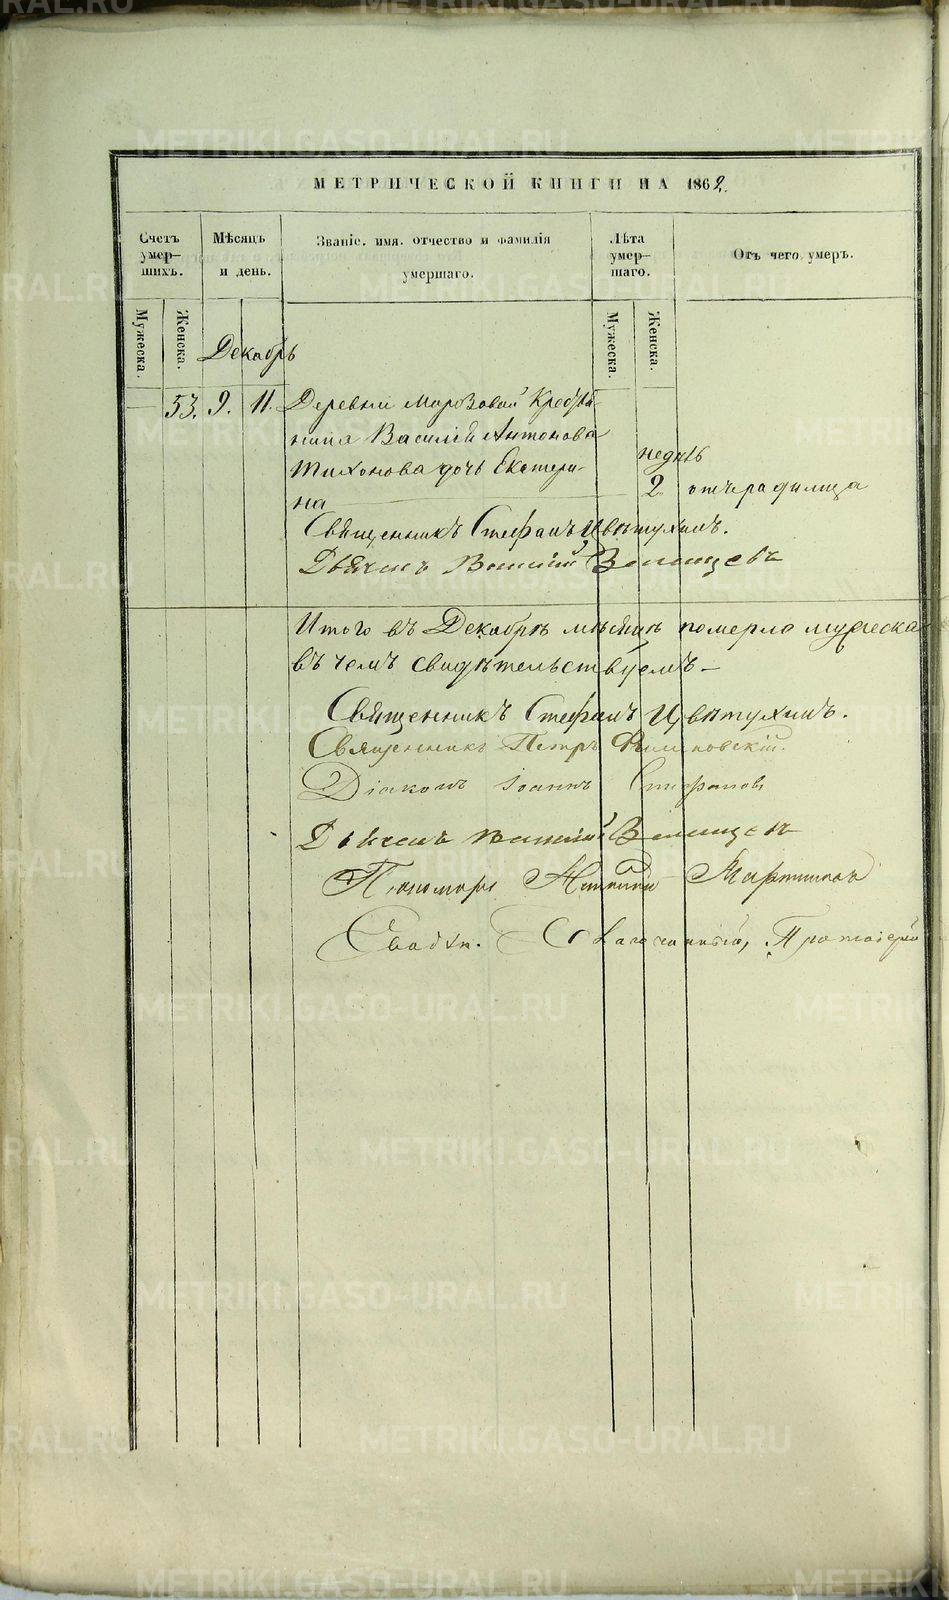 МЕТРИЧЕСКОЙ КНИГИ НА 1862.
Счетъ умершихъ.
Мѣсяцъ и день.
Званіе, имя, отчество и фамилія умершаго.
Лѣта умершаго.
Отъ чего умеръ.
Мужеска.
Женска.
Мужеска.
Женска.
Декабрь
53. 9. 11. Деревни Морозовой Крестья-
нина Василія Антонова
Тихонова дочь Екатери-
на
недѣль
2 отъ радимца
Священникъ Стефанъ Цвѣтухинъ.
Дьячекъ Василій
Итого въ Декабрѣ мѣсяцѣ померло мужеска
въ чемъ свидѣтельствуемъ —
Священникъ Стефанъ Цвѣтухинъ.
Священникъ Петръ
Діаконъ Іоаннъ Стефановъ
Дьячекъ Василій
Пономарь Мартиновъ
Свидѣт. Благочинный, Протоіерей
METRIKI.GASO-URAL.RU